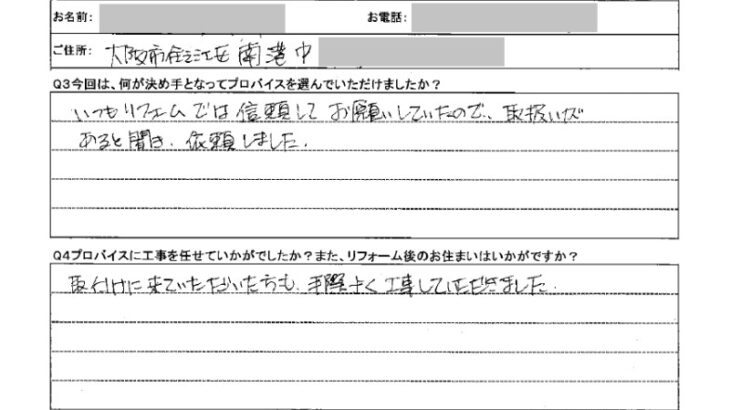 お名前: お電話:
ご住所: 大阪市住之江区南港中
Q3今回は、何が決め手となってプロバイスを選んでいただけましたか?
いつもリフォームでは信頼してお願いしていたので、取扱いが
あると聞き、依頼しました。
Q4プロバイスに工事を任せていかがでしたか?また、リフォーム後のお住まいはいかがですか?
取付けに来ていただいた方も、手際よく工事していただきました。